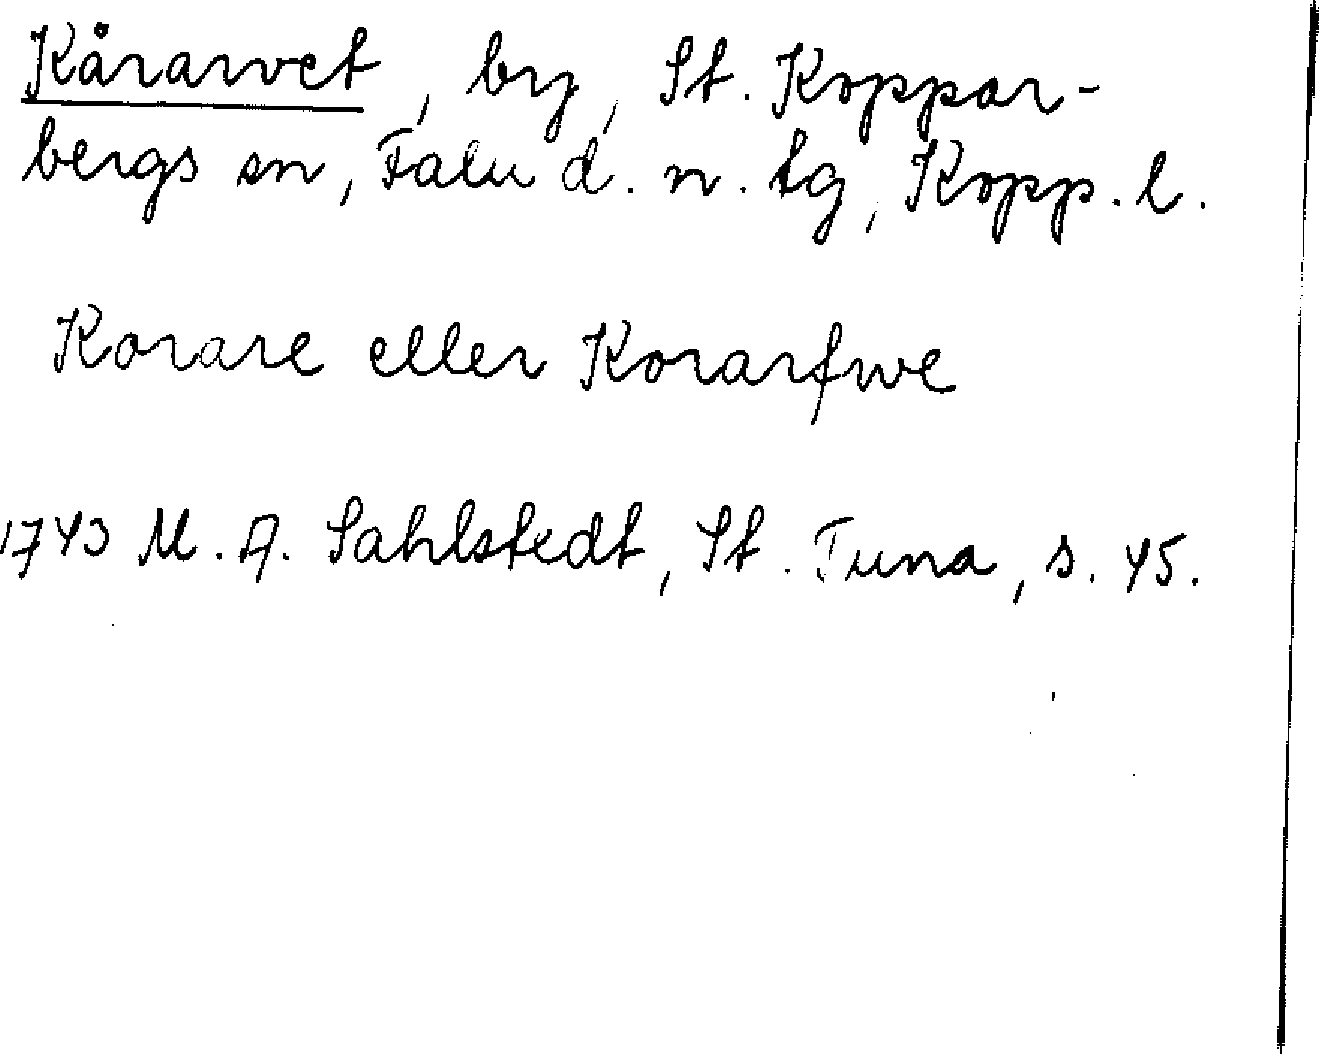 Kårarvet, by, St. Koppar-
bergs sn, Falu d. n. tg, Kopp. l.
Korare eller Korarfwe
1743 M. A. Sahlstedt, St. Tuna, s. 45.